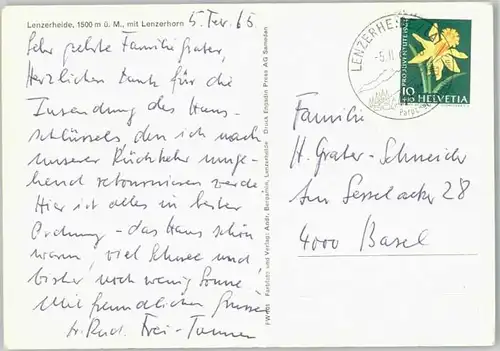 Lenzerheide, 1500 m ü. M., mit Lenzerhorn
5. Febr. 65
Sehr geehrte Familie Grater,
Herzlichen Dank für die
Zusendung des Haus-
schlüssels den ich nach
unserer Rückkehr umge-
hend retournieren werde
Hier ist alles in bester
Ordnung - das Haus schön
warm, viel Schnee und
bisher noch wenig Sonne!
Mit freundlichen Grüssen
Rud. Frei-
Druck Engadin Press AG Samedan
Farbfoto und Verlag: Andr.
LENZERHE
-5.II
PRO JUVENTUTE
10
+10 HELVETIA
Familie
H. Grater-Schneider
Am Sesselacker 28
4000 Basel